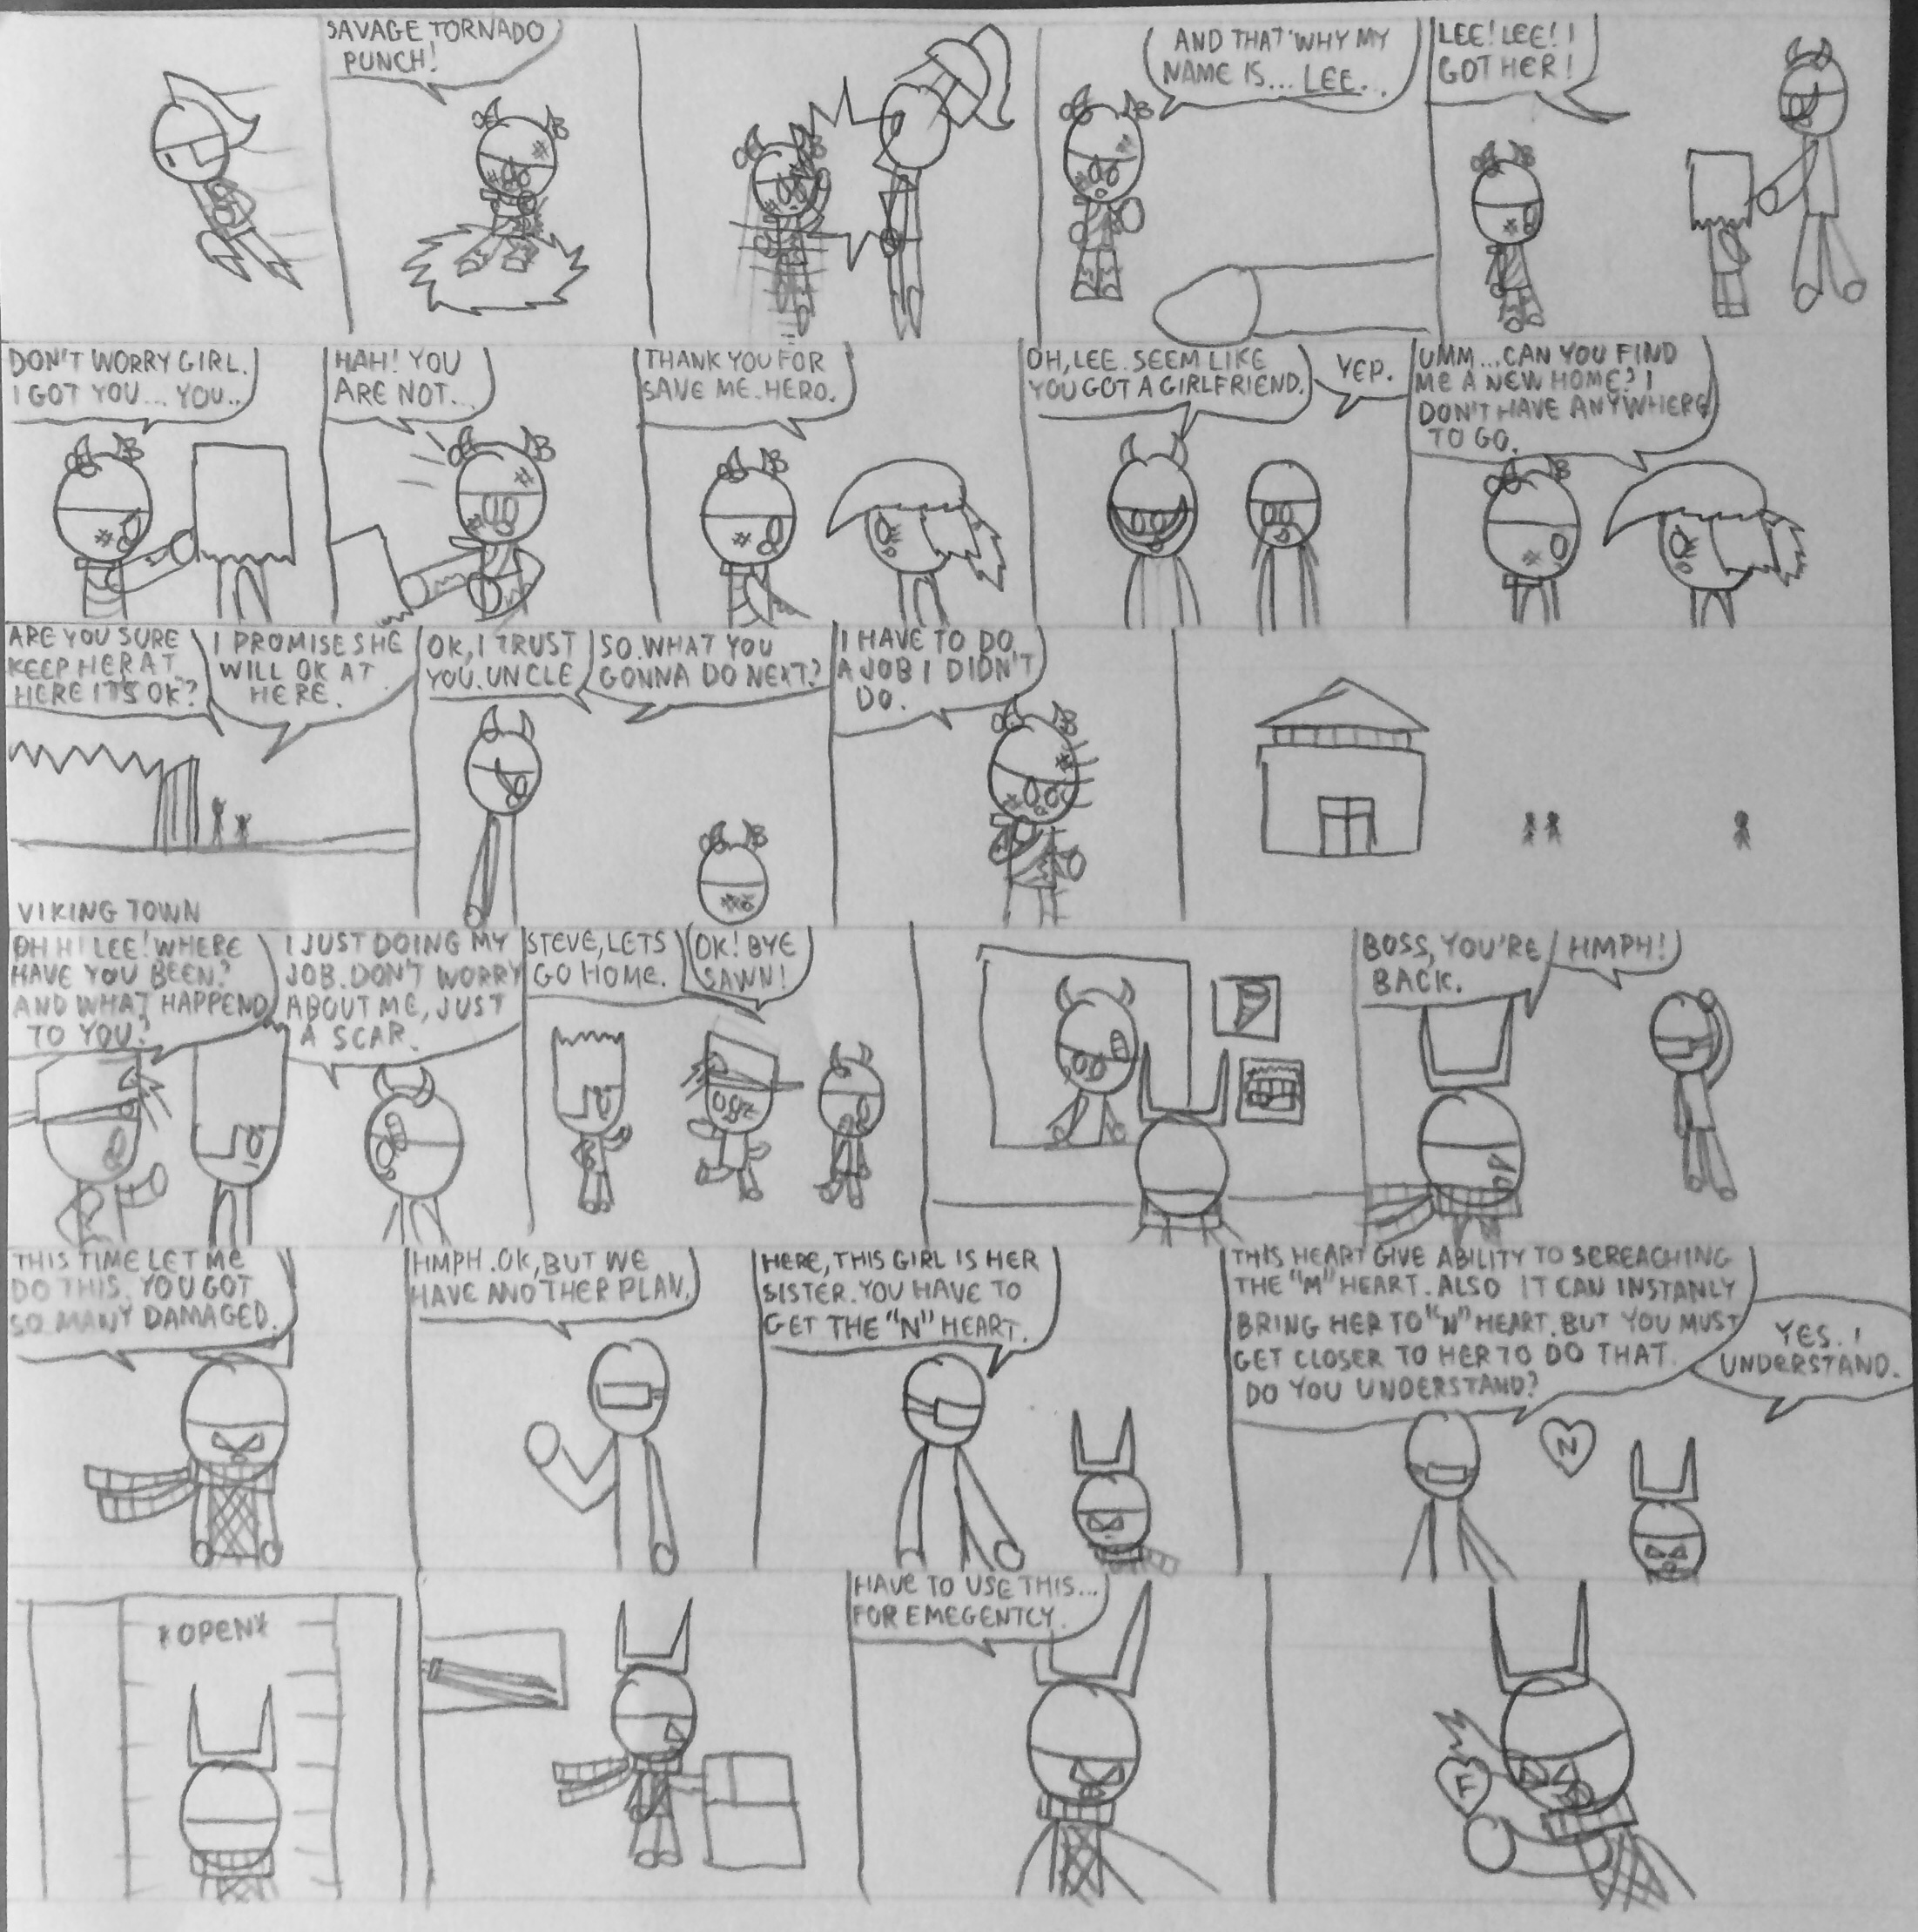 SAVAGE TORNADO
PUNCH!
AND THAT'WHY MY
NAME IS... LEE..
LEE! LEE! I
GOT HER!
DON'T WORRY GIRL.
I GOT YOU... YOU..
HAH! YOU
ARE NOT...
THANK YOU FOR
SAVE ME. HERO.
OH, LEE. SEEM LIKE
YOU GOT A GIRLFRIEND.
YEP.
UMM...CAN YOU FIND
ME A NEW HOME? I
DON'T HAVE ANYWHERE
TO GO.
ARE YOU SURE
KEEP HER AT
HERE ITS OK?
I PROMISE SHE
WILL OK AT
HERE.
VIKING TOWN
OK, I TRUST
YOU. UNCLE
SO. WHAT YOU
GONNA DO NEXT?
I HAVE TO DO
A JOB I DIDN'T
DO.
OH HI LEE! WHERE
HAVE YOU BEEN?
AND WHAT HAPPEND
TO YOU?
I JUST DOING MY
JOB. DON'T WORRY
ABOUT ME, JUST
A SCAR.
STEVE, LETS
GO HOME.
OK! BYE
SAWN!
BOSS, YOU'RE
BACK.
HMPH!
THIS TIME LET ME
DO THIS. YOU GOT
SO MANY DAMAGED.
HMPH. OK, BUT WE
HAVE ANOTHER PLAN.
HERE, THIS GIRL IS HER
SISTER. YOU HAVE TO
GET THE "N" HEART.
THIS HEART GIVE ABILITY TO SEREACHING
THE "M" HEART. ALSO IT CAN INSTANLY
BRING HER TO "N" HEART. BUT YOU MUST
GET CLOSER TO HER TO DO THAT.
DO YOU UNDERSTAND?
YES. I
UNDERSTAND.
N
*OPEN*
HAVE TO USE THIS...
FOR EMEGENTCY.
F